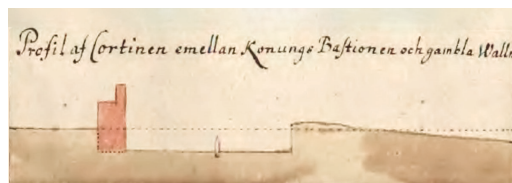 Profil af Cortinen emellan Konungs Bastionen och gambla